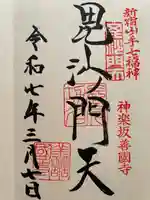 新宿山ノ手七福神
毘沙門天
神楽坂善國寺
令和七年三月七日